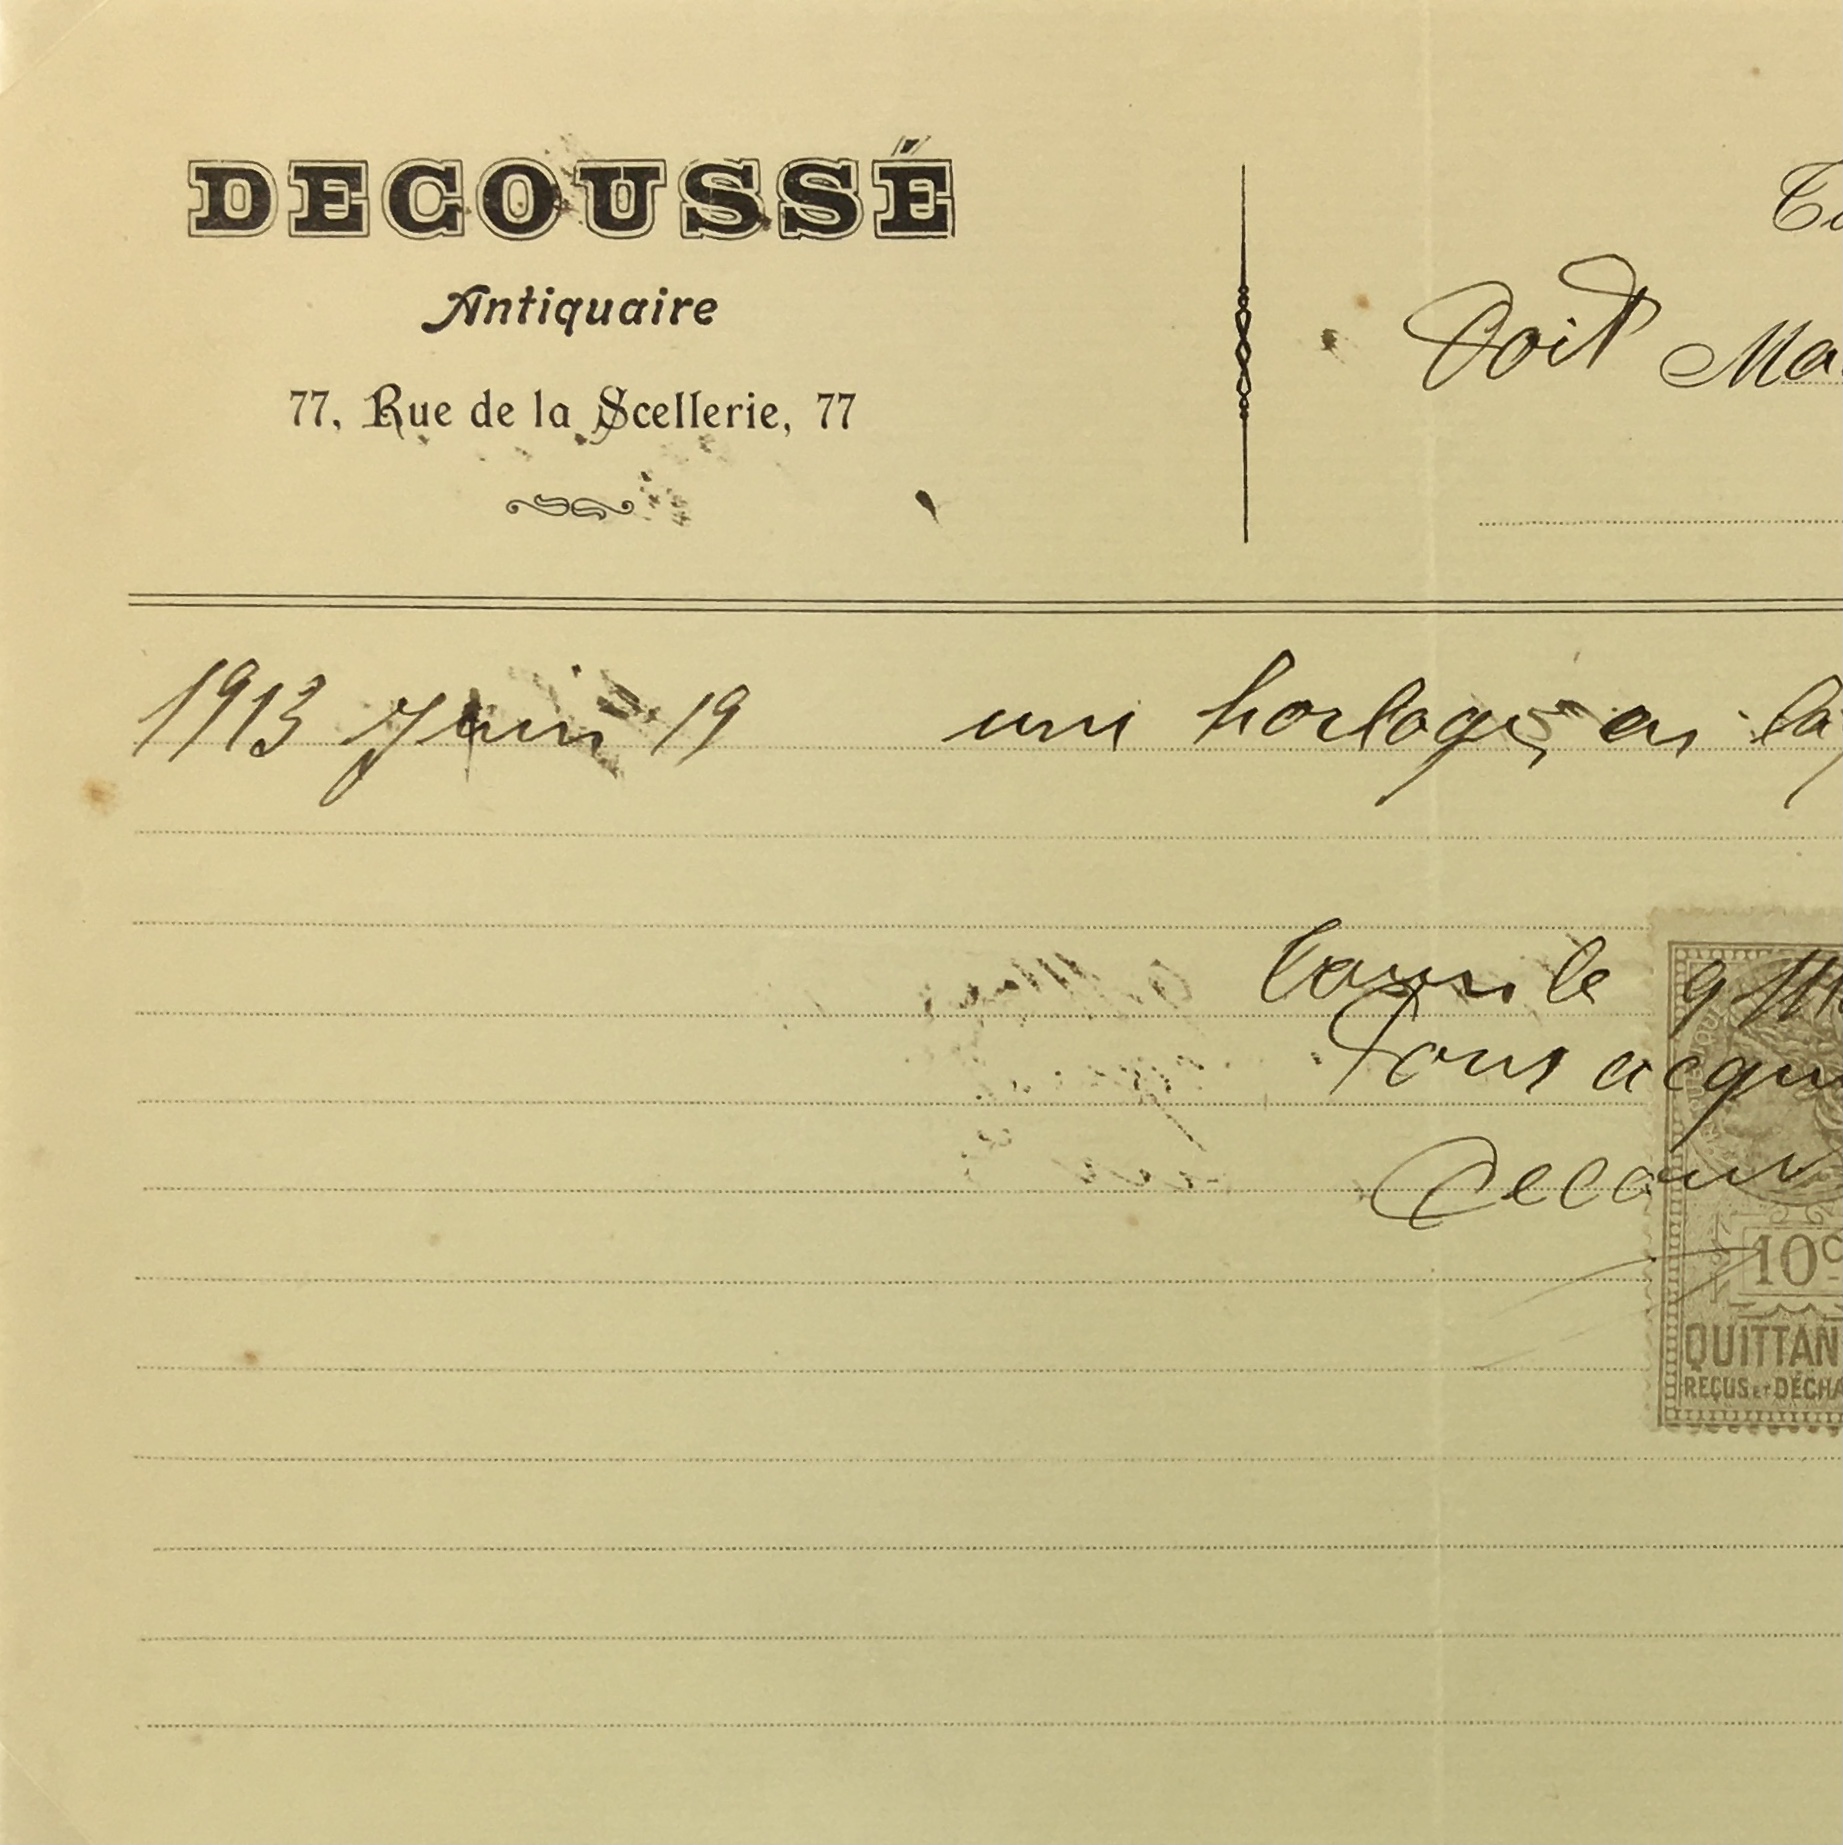 DECOUSSÉ
Antiquaire
77, Rue de la Scellerie, 77
Doit Ma
1913 Juin 19 une horloge en la
le 9
Pour acqu
Decou
10c
QUITTAN
REÇUS ET DÉCHA